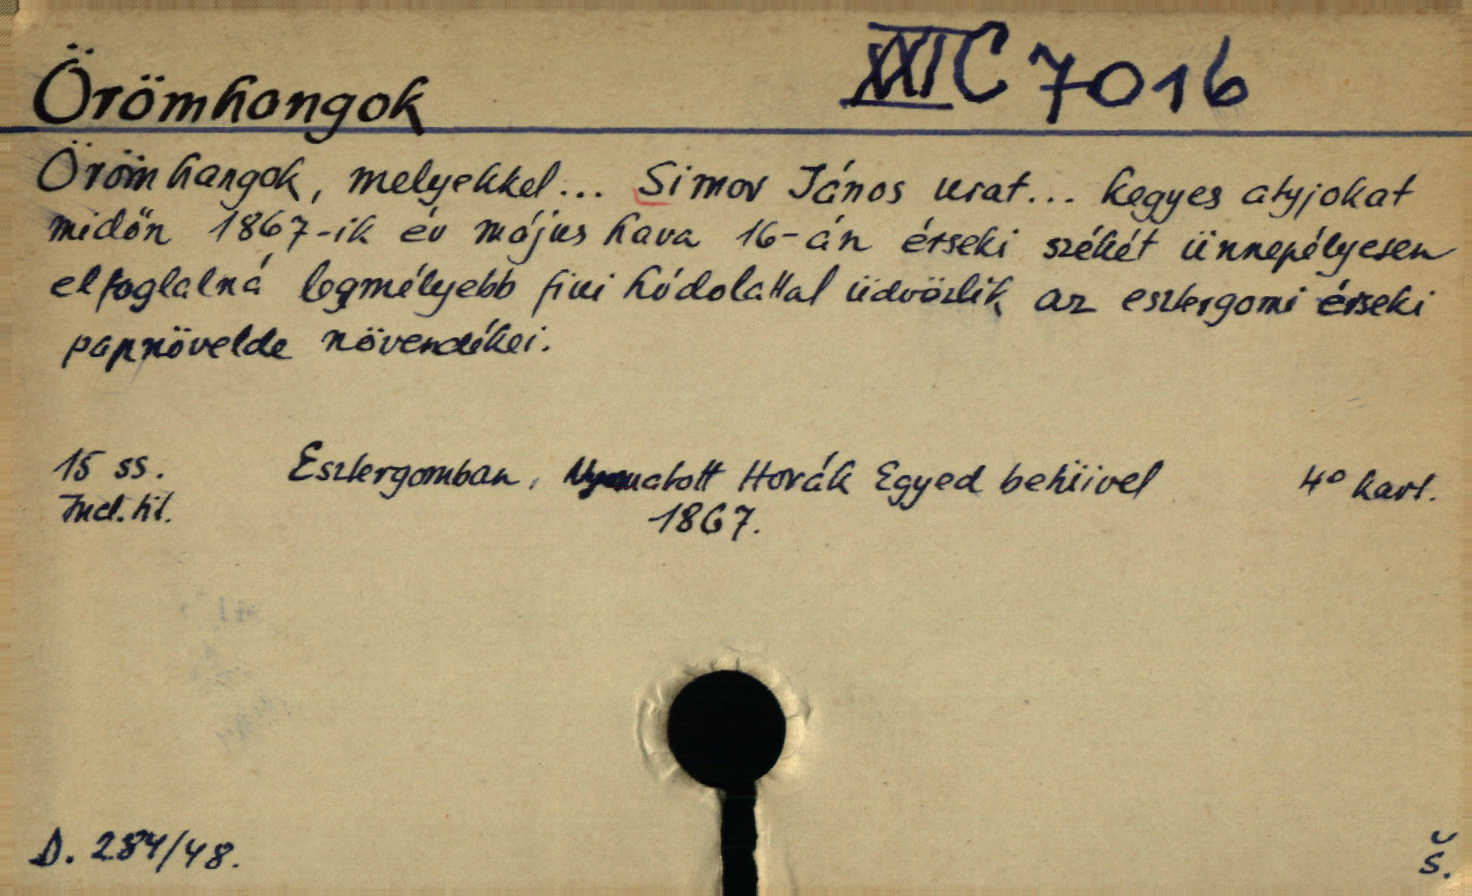 Örömhangok
XXI C 7016
Örömhangok, melyekkel... Simor János urat... kegyes atyjokat
midőn 1867-ik év május hava 16-án érseki székét ünnepélyesen
elfoglalná legmélyebb fiui hódolattal üdvözlik az esztergomi érseki
papnövelde növendékei.
15 ss. Esztergomban, Nyomatott Horák Egyed betüivel 4° kart.
Incl. tit. 1867.
D. 284/48.
Š.